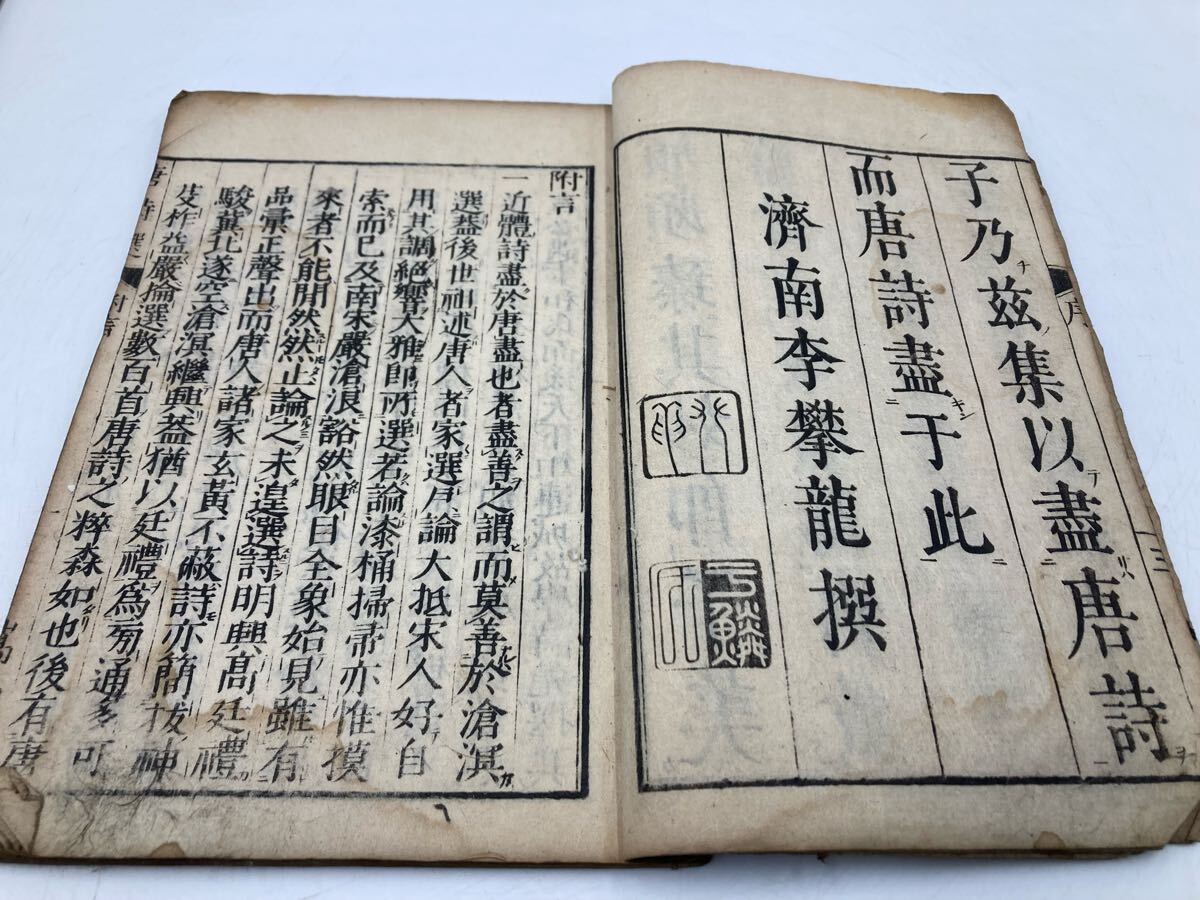 子乃茲集以盡唐詩
而唐詩盡于此
濟南李攀龍撰
附言
一近體詩盡於唐盡也者盡善之謂而莫善於滄溟
選蓋後世祖述唐人者家選戶論大抵宋人好自
用其調絕響大雅卽所選若論漆桶掃帚亦惟摸
索而已及南宋嚴滄浪豁然眼目全象始見雖有
來者不能間然然止論之未遑選詩明興高廷禮
品彙正聲出而唐人諸家玄黃不蔽詩亦簡拔神
駿冀北遂空滄溟繼興蓋猶以廷禮為芻通多可
芟柞益嚴掄選數百首唐詩之粹森如也後有唐
唐詩選
附言
序
三